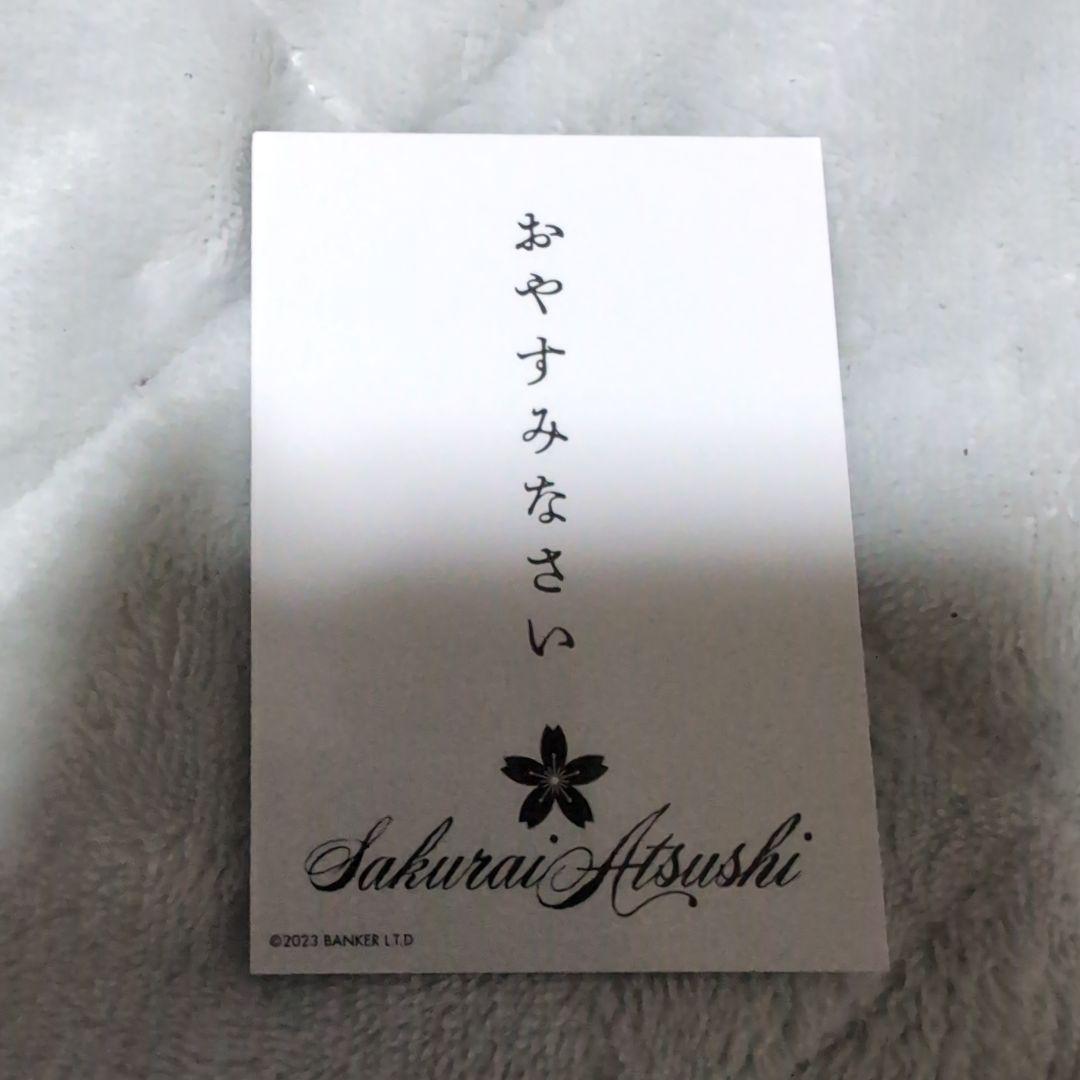 おやすみなさい
Sakurai Atsushi
©2023 BANKER LTD